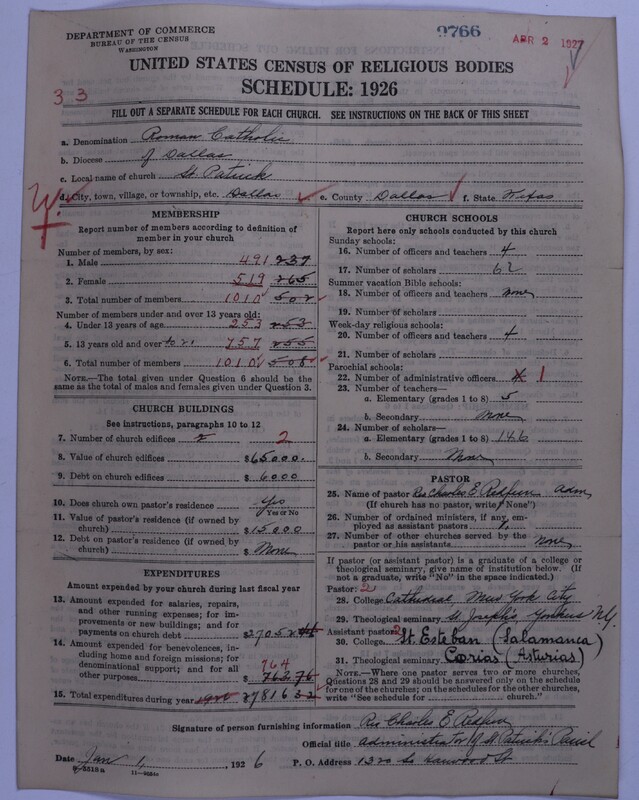 DEPARTMENT OF COMMERCE
BUREAU OF THE CENSUS
WASHINGTON
9766
APR 2 1927
UNITED STATES CENSUS OF RELIGIOUS BODIES
SCHEDULE: 1926
33
FILL OUT A SEPARATE SCHEDULE FOR EACH CHURCH. SEE INSTRUCTIONS ON THE BACK OF THIS SHEET
a. Denomination Roman Catholic
b. Diocese of Dallas
c. Local name of church St Patrick
d. City, town, village, or township, etc. Dallas e. County Dallas f. State Texas
MEMBERSHIP
Report number of members according to definition of member in your church
Number of members, by sex:
1. Male 491 237
2. Female 519 265
3. Total number of members 1010 502
Number of members under and over 13 years old:
4. Under 13 years of age 253 253
5. 13 years old and over 757 255
6. Total number of members 1010 508
NOTE.—The total given under Question 6 should be the
same as the total of males and females given under Question 3.
CHURCH BUILDINGS
See instructions, paragraphs 10 to 12
7. Number of church edifices 2 2
8. Value of church edifices $65000.
9. Debt on church edifices $6000
10. Does church own pastor's residence Yes
Yes or No
11. Value of pastor's residence (if owned by
church) $15000
12. Debt on pastor's residence (if owned by
church) $None
EXPENDITURES
Amount expended by your church during last fiscal year
13. Amount expended for salaries, repairs,
and other running expenses; for im-
provements or new buildings; and for
payments on church debt $27052
14. Amount expended for benevolences,
including home and foreign missions; for
denominational support; and for all
other purposes 764
$763.76
15. Total expenditures during year $27816
CHURCH SCHOOLS
Report here only schools conducted by this church
Sunday schools:
16. Number of officers and teachers 4
17. Number of scholars 62
Summer vacation Bible schools:
18. Number of officers and teachers none
19. Number of scholars
Week-day religious schools:
20. Number of officers and teachers 4
21. Number of scholars
Parochial schools:
22. Number of administrative officers 1
23. Number of teachers—
a. Elementary (grades 1 to 8) 5
b. Secondary None
24. Number of scholars—
a. Elementary (grades 1 to 8) 146
b. Secondary None
PASTOR
25. Name of pastor Rev Charles E adm
(If church has no pastor, write "None")
26. Number of ordained ministers, if any, em-
ployed as assistant pastors
27. Number of other churches served by the
pastor or his assistants none
If pastor (or assistant pastor) is a graduate of a college or
theological seminary, give name of institution below. (If
not a graduate, write "No" in the space indicated.)
Pastor: 2
28. College Cathedral New York City
29. Theological seminary St Joseph's Yonkers N.Y.
Assistant pastor: 2
30. College St. Esteban (Salamanca)
31. Theological seminary Corias (Asturias)
NOTE.—Where one pastor serves two or more churches,
Questions 28 and 29 should be answered only on the schedule
for one of the churches; on the schedules for the other churches,
write "See schedule for church."
Signature of person furnishing information Rev Charles E
Official title administrator of St Patrick's
Date Jan 1, 1926 P. O. Address 1320 So Harwood St
11—9524